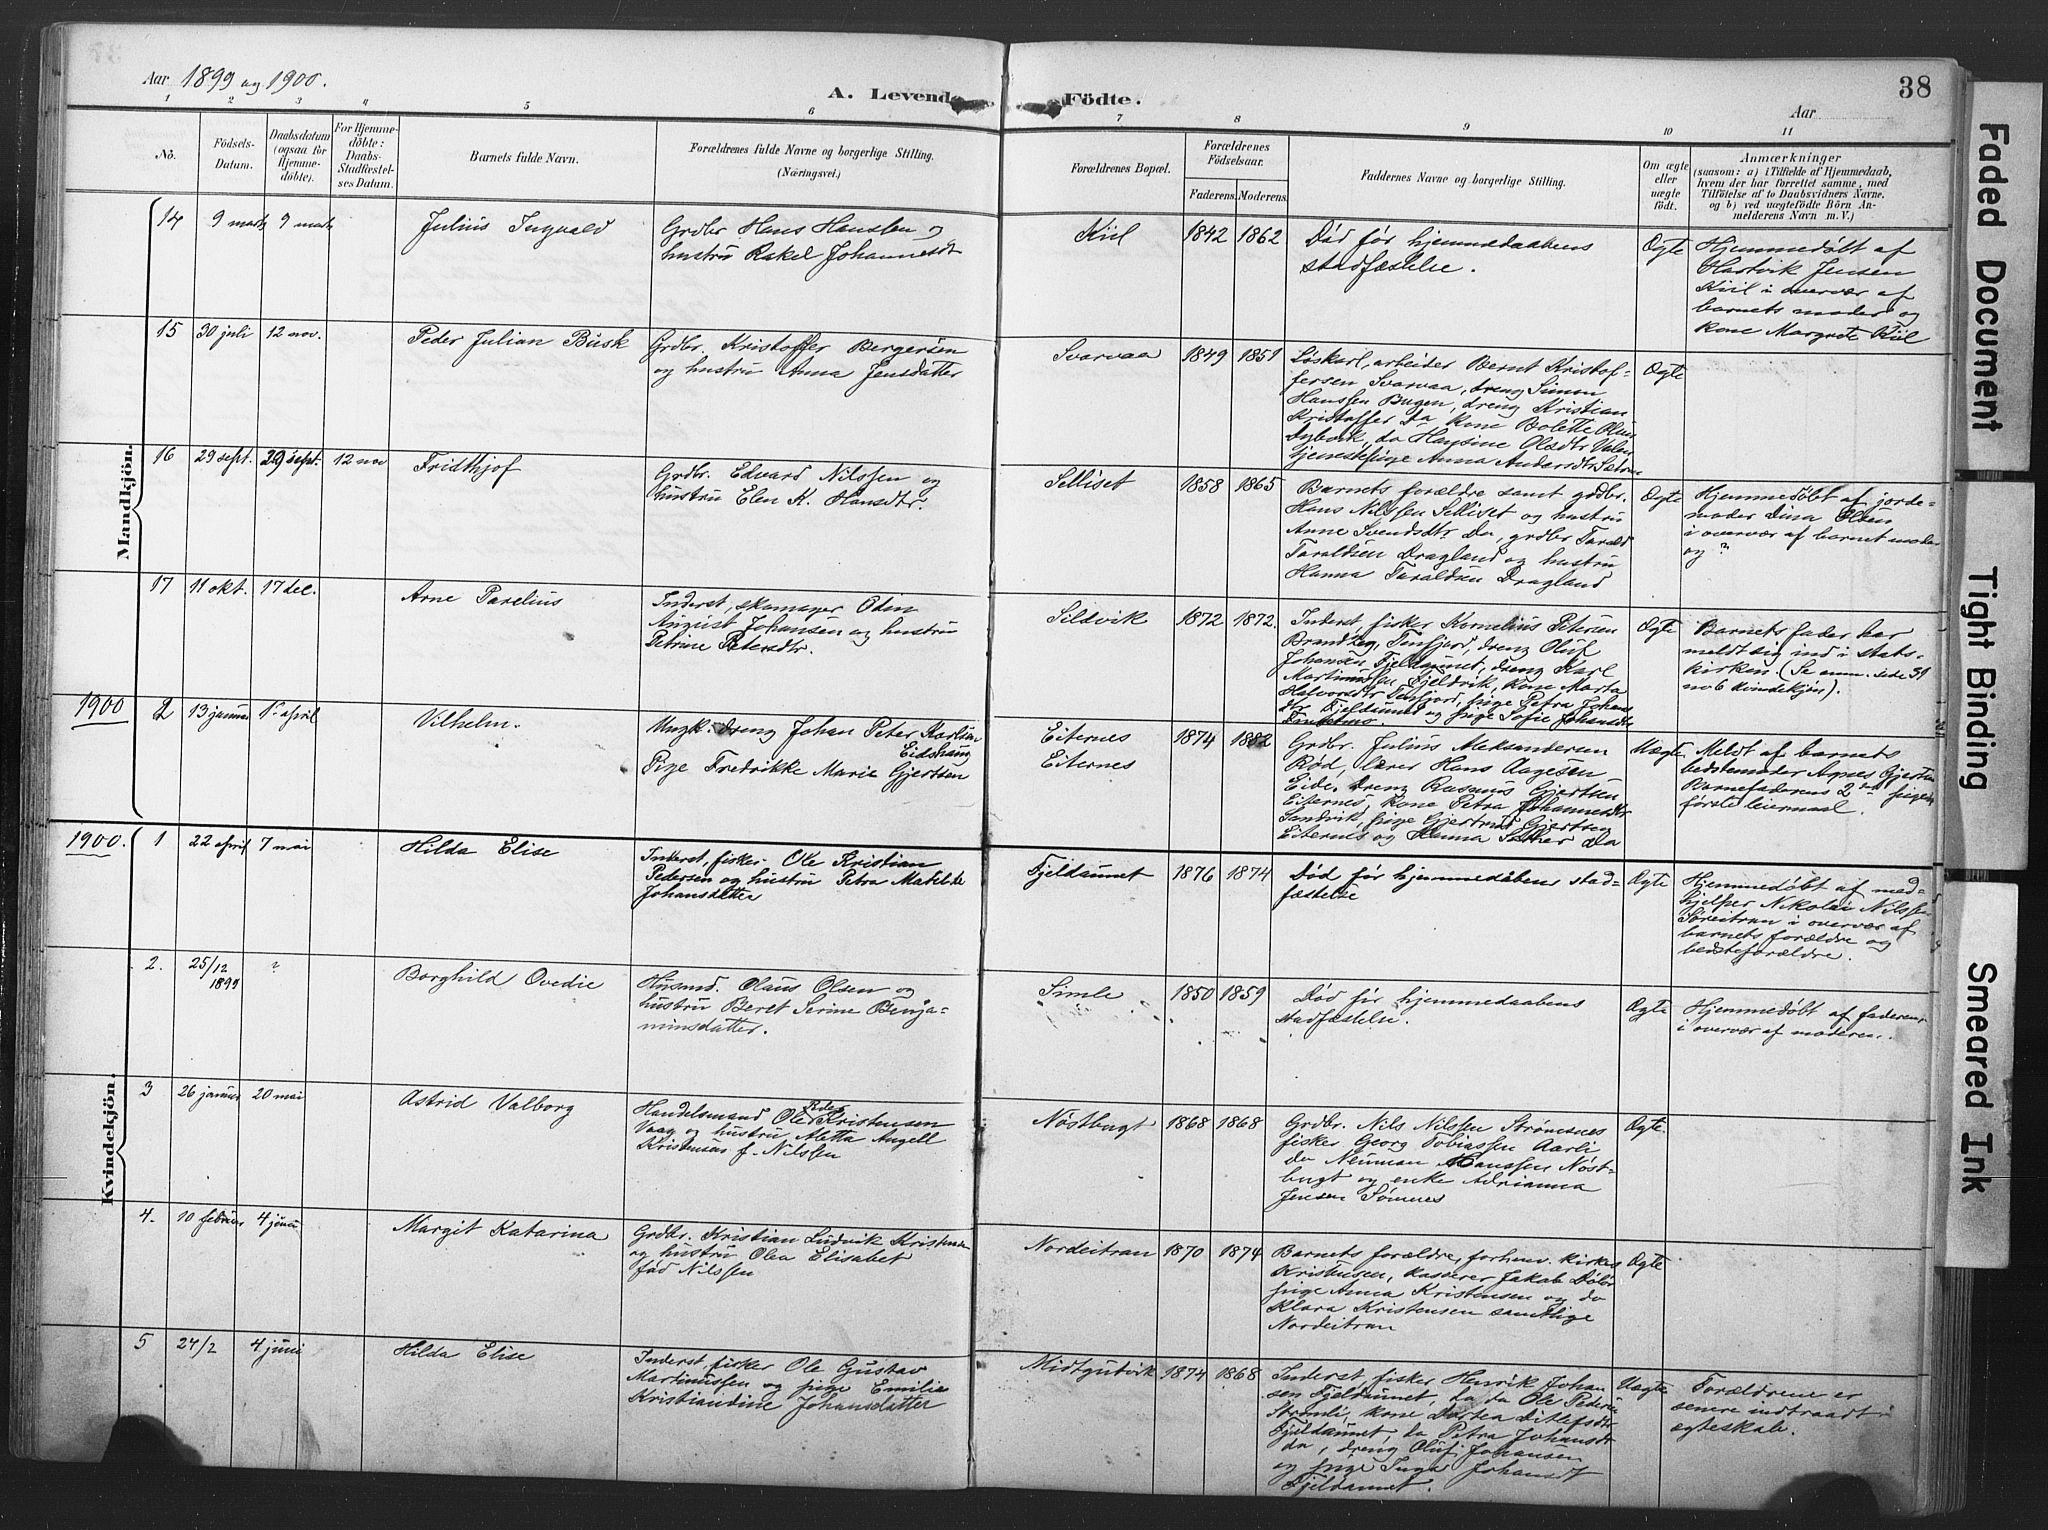 38
Aar 1899 og 1900.
A. Levende Födte.
Aar
1 2 3 4 5 6 7 8 9 10 11
No.
Födsels-
Datum.
Daabsdatum
(ogsaa for
Hjemme-
döbte).
For Hjemme-
döbte:
Daabs-
Stadfæstel-
ses Datum.
Barnets fulde Navn.
Forældrenes fulde Navne og borgerlige Stilling.
(Næringsvei.)
Forældrenes Bopæl.
Forældrenes
Födselsaar.
Faderens. Moderens.
Faddernes Navne og borgerlige Stilling.
Om ægte
eller
uægte
födt.
Anmærkninger
(saasom: a) i Tilfælde af Hjemmedaab,
hvem der har forrettet samme, med
Tilföielse af to Daabsvidners Navne.
og b) ved uægtefödte Börn An-
melderens Navn m. V.)
Mandkjön.
14 9 marts 9 marts
Julius Ingvald
Grdbr Hans Hanssen og
hustru Rakel Johannesdt
Kiil
1842 1862
Død før hjemmedaabens
stadfæstelse.
Ægte
Hjemmedøbt af
Hartvik Jensen
Kiil i overvær af
barnets moder og
kone Margrete Kiil
15 30 juli 12 nov.
Peder Julian Busk
Grdbr. Kristoffer Bergersen
og hustru Anna Jensdatter
Svarvaa
1849 1851
Løskarl, arbeider Bernt Kristof-
fersen Svarvaa, dreng Simon
Hanssen Bugen, dreng Kristian
Kristoffer Do kone Bolette
Dybvik, do Hansine Olsdtr
tjenestepige Anna Andersdtr
Ægte
16 29 sept. 29 sept. 12 nov
Fridthjof
Grdbr. Edvard Nilssen og
hustru Elen K. Hansdtr.
Selliset
1858 1865
Barnets forældre samt grdbr.
Hans Nilssen Selliset og hustru
Anne Svendsdtr Do, grdbr Tarald
Taraldsen Dragland og hustru
Hanna Taraldsen Dragland
Ægte
Hjemmedøbt af jorde-
moder Dina Olsen
i overvær af barnet moder
og ?
17 11 okt. 17 dec.
Arne Parelius
Inderst, skomager Odin
August Johansen og hustru
Petrine Petersdtr.
Sildvik
1872 1872.
Inderst, fisker Kornelius Petersen
Brandseg, Finfjord, dreng Oluf
Johansen, Fjeldaunet, dreng Karl
Martinussen Fjeldvik, kone Marta
Halvorsdtr Finfjord, pige Petra Johans
dtr Fjeldaunet og pige Sofie Johansdtr
Ægte
Barnets fader har
meldt sig ind i stats-
kirken. (Se anm. side 31
no 6 kvindekjøn).
1900 2 13 januar 1ste april
Vilhelm.
Ungk. dreng Johan Peter Karlsen
Eidshaug
Pige Fredrikke Marie Gjertsen
Eiternes
Eiternes
1874 1882
Grdbr. Julius Aleksandersen
Rød, lærer Hans Aagesen
Eide, dreng Rasmus Gjertsen
Eiternes, kone Petra Johannesdtr
Sandvik, pige Gjertrud Gjertsen
Eiternes og Hanna Sæther Do
Uægte
Meldt af barnets
bedstemoder Agnes Gjertsen
Barnefaderens 2det, pigens
første leiermaal.
Kvindekjön.
1900. 1 22 april 7 mai
Hilda Elise
Inderst, fisker Ole Kristian
Pedersen og hustru Petra Matilde
Johansdatter
Fjeldaunet
1876 1874
Død før hjemmedåbens stad-
fæstelse
Ægte
Hjemmedøbt af med-
hjelper Nikolai Nilssen
Søreitran i overvær af
barnets forældre og
bedsteforældre.
2. 25/12 1899 ?
Borghild Ovedie
Husmd. Olaus Olsen og
hustru Beret Serine Benja-
minsdatter.
Simle
1850 1859
Død før hjemmedaabens
stadfæstelse.
Ægte
Hjemmedøbt af faderen
i overvær af moderen.
3 26 januar 20 mai
Astrid Valborg
Handelsmand Ole Peder Kristensen
Vaag og hustru Aletta Angell
Kristensen f. Nilssen
Nøstbugt
1868 1868
Grdbr. Nils Nilssen Strømsnes
fisker Georg Tobiassen Aarli
do Neuman Hanssen Nøst-
bugt og enke Adrianna
Jensen Sømnes
Ægte
4. 10 februar 4 juni
Margit Katarina
Grdbr. Kristian Ludvik Kristensen
og hustru Olea Elisabet
fød Nilssen
Nordeitran
1870 1874
Barnets forældre, forhenv. kirkes
Kristensen, kasserer Jakob
pige Anna Kristensen og do
Klara Kristensen samtlige
Nordeitran
Ægte
5 24/2 4 juni
Hilda Elise
Inderst, fisker Ole Gustav
Martinussen og pige Emilie
Kristiandine Johansdatter
Midtgutvik
1874 1868
Inderst, fisker Henrik Johan
sen Fjeldaunet, do do Ole Peders
Strømli, kone Dortea Ditlefsdtr
Fjeldaunet, do Petra Johansdtr
do, dreng Oluf Johansen
og pige Inga Johansdt
Fjeldaunet.
Uægte
Forældrene er
senere indtraadt i
ægteskab.
Faded Document
Tight Binding
Smeared Ink